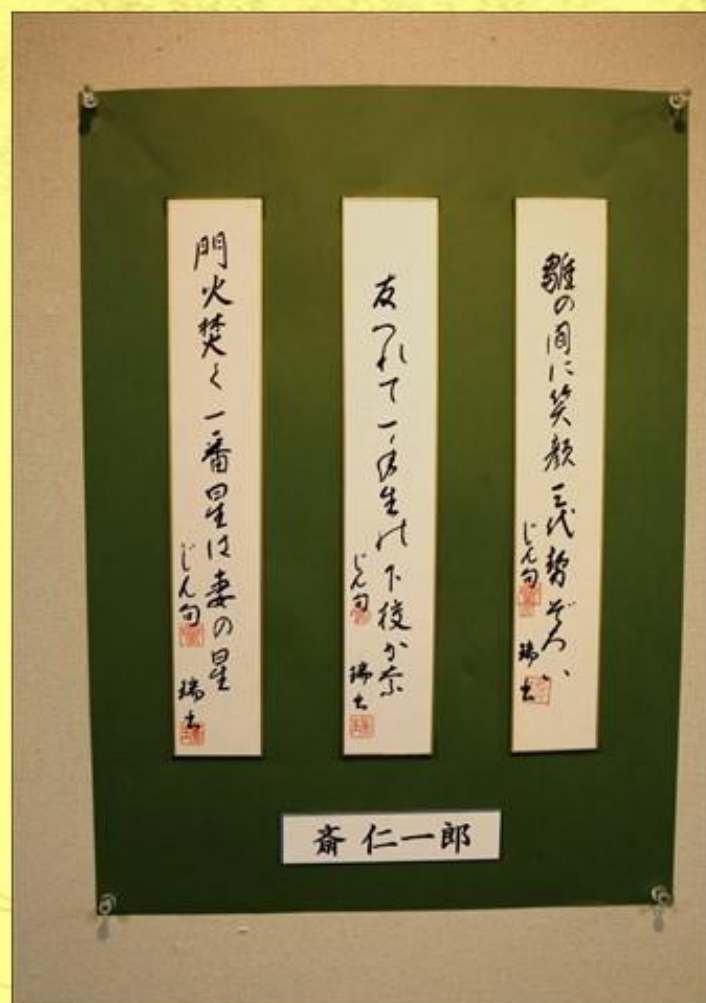 雛の間に笑顔三代勢ぞろい
じん句
瑞書
友つれて一年生の下校か奈
じん句
瑞書
門火焚く一番星は妻の星
じん句
瑞書
斎 仁一郎